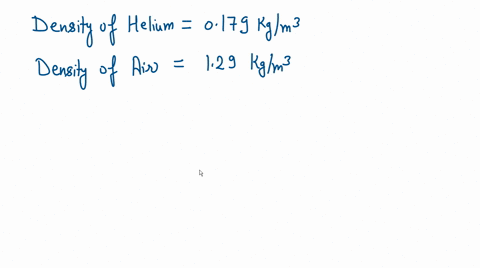 Density of Helium = 0.179 Kg/m³
Density of Air = 1.29 Kg/m³